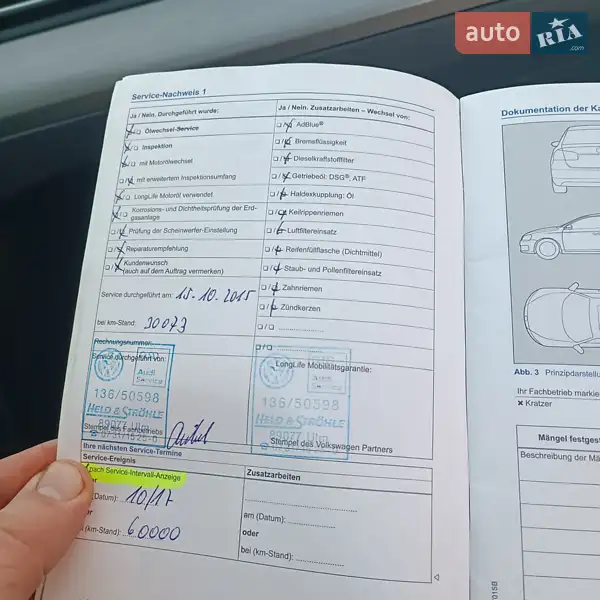 auto RIA .com
Service-Nachweis 1
Ja / Nein. Durchgeführt wurde:
Ölwechsel-Service
Inspektion
mit Motorölwechsel
mit erweitertem Inspektionsumfang
LongLife Motoröl verwendet
Korrosions- und Dichtheitsprüfung der Erd-
gasanlage
Prüfung der Scheinwerfer-Einstellung
Reparaturempfehlung
Kundenwunsch
(auch auf dem Auftrag vermerken)
Service durchgeführt am: 15.10.2015
bei km-Stand: 30073
Rechnungsnummer:
Service durchgeführt von:
Audi
Service
136/50598
HELD & STRÖHLE
89077 Ulm
Stempel des Fachbetriebs
Ja / Nein. Zusatzarbeiten – Wechsel von:
AdBlue®
Bremsflüssigkeit
Dieselkraftstofffilter
Getriebeöl: DSG®, ATF
Haldexkupplung: Öl
Keilrippenriemen
Luftfiltereinsatz
Reifenfüllflasche (Dichtmittel)
Staub- und Pollenfiltereinsatz
Zahnriemen
Zündkerzen
LongLife Mobilitätsgarantie:
Audi
Service
136/50598
HELD & STRÖHLE
89077 Ulm
Stempel des Volkswagen Partners
Ihre nächsten Service-Termine
Service-Ereignis
nach Service-Intervall-Anzeige
(Datum): 10/17
(km-Stand): 60000
Zusatzarbeiten
am (Datum):
oder
bei (km-Stand):
Dokumentation der Ka
Abb. 3 Prinzipdarstellu
Ihr Fachbetrieb markie
× Kratzer
Mängel festges
Beschreibung der Mä